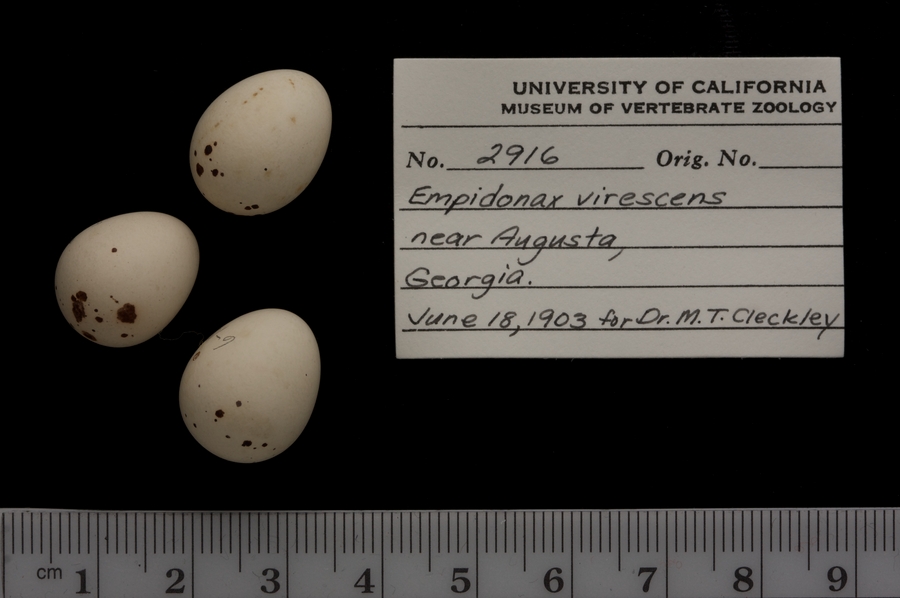 UNIVERSITY OF CALIFORNIA
MUSEUM OF VERTEBRATE ZOOLOGY
No. 2916 Orig. No.
Empidonax virescens
near Augusta,
Georgia.
June 18, 1903 for Dr. M. T. Cleckley
cm 1 2 3 4 5 6 7 8 9